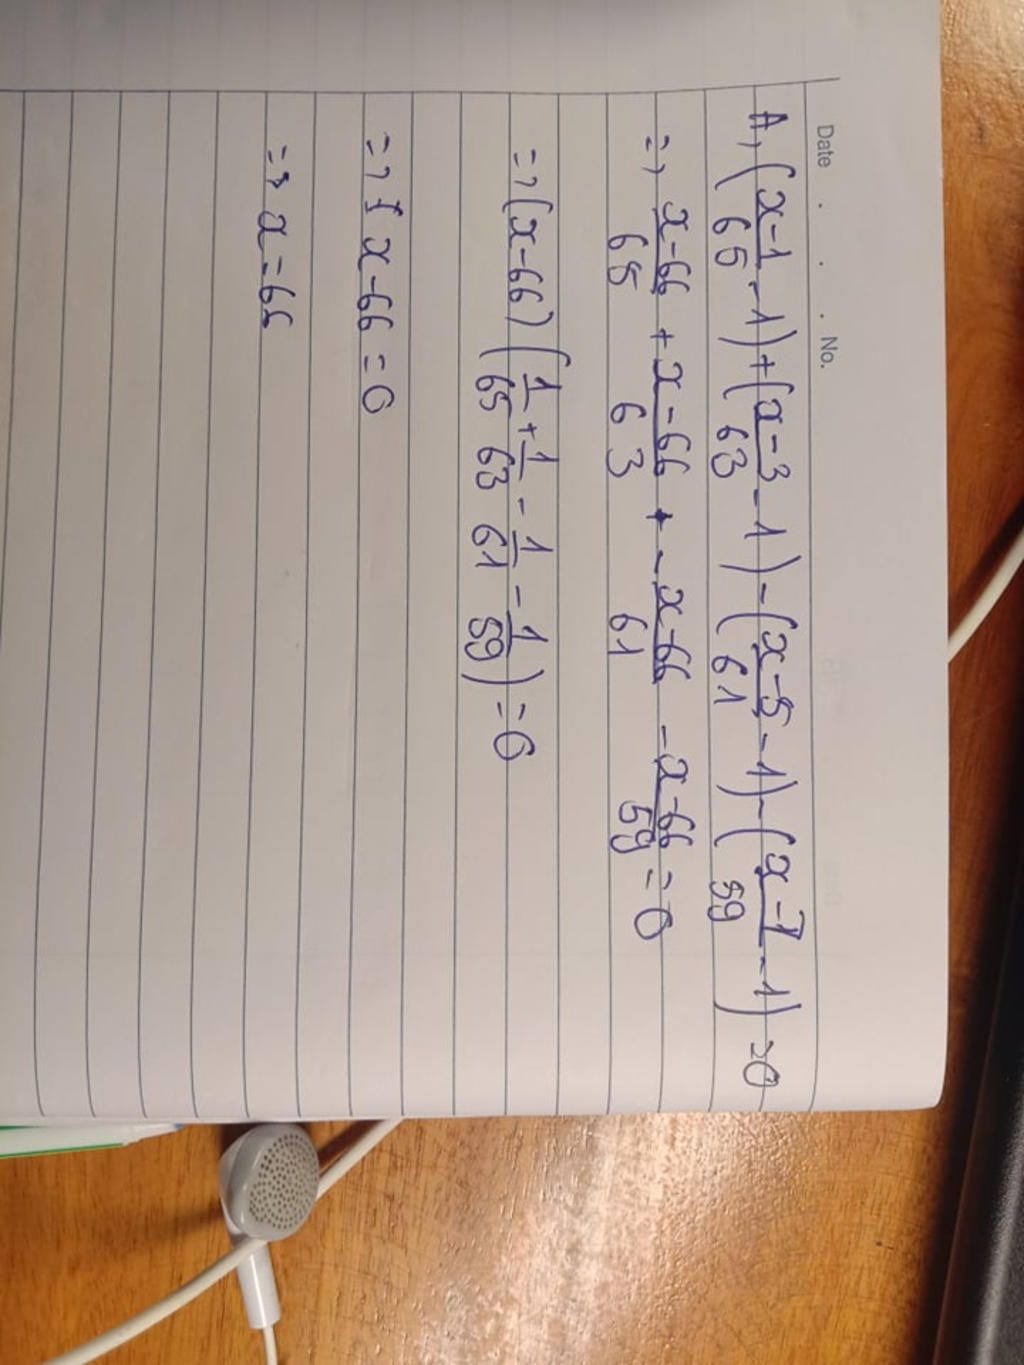 Date . . . No.
A, (x-1/65 - 1) + (x-3/63 - 1) - (x-5/61 - 1) - (x-7/59 - 1) = 0
=> x-66/65 + x-66/63 + - x-66/61 - x-66/59 = 0
=> (x-66) (1/65 + 1/63 - 1/61 - 1/59) = 0
=> x-66 = 0
=> x = 66